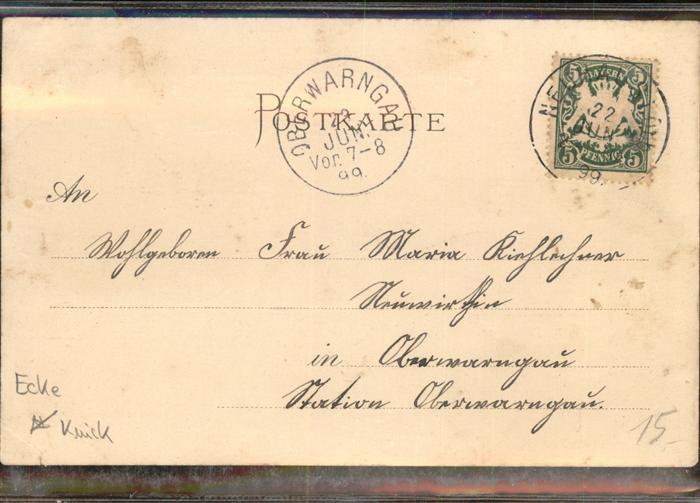 POSTKARTE
OBERWARNGAU
JUN.
Vor. 7-8
99.
5 BAYERN 5
5 PFENNIG 5
22
JUN
99.
An
Wohlgeboren Frau Maria Kiehlechner
Neuwirthin
in Oberwarngau
Station Oberwarngau.
Ecke
Knick
15.-